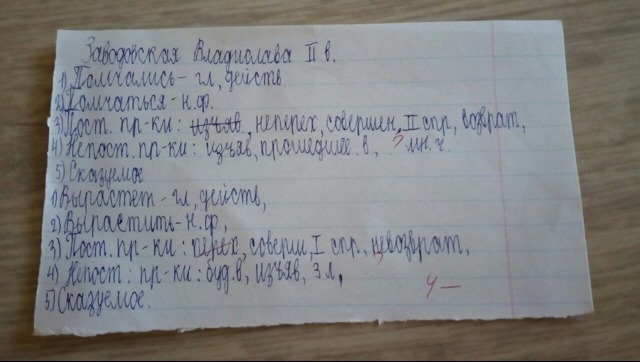 Заводовская Владислава II в.
1) Помчались - гл, действ
2) Помчаться - н.ф.
3) Пост. пр-ки: изъяв, неперех, совершен, II спр, возврат,
4) Непост. пр-ки: изъяв, прошедшее. в, ? мн. ч.
5) Сказуемое
1) Вырастет - гл, действ,
2) Вырастить - н.ф,
3) Пост. пр-ки: перех, соверш, I спр, невозврат,
4) Непост: пр-ки: буд. в, изъяв, 3 л,
5) Сказуемое.
4 -